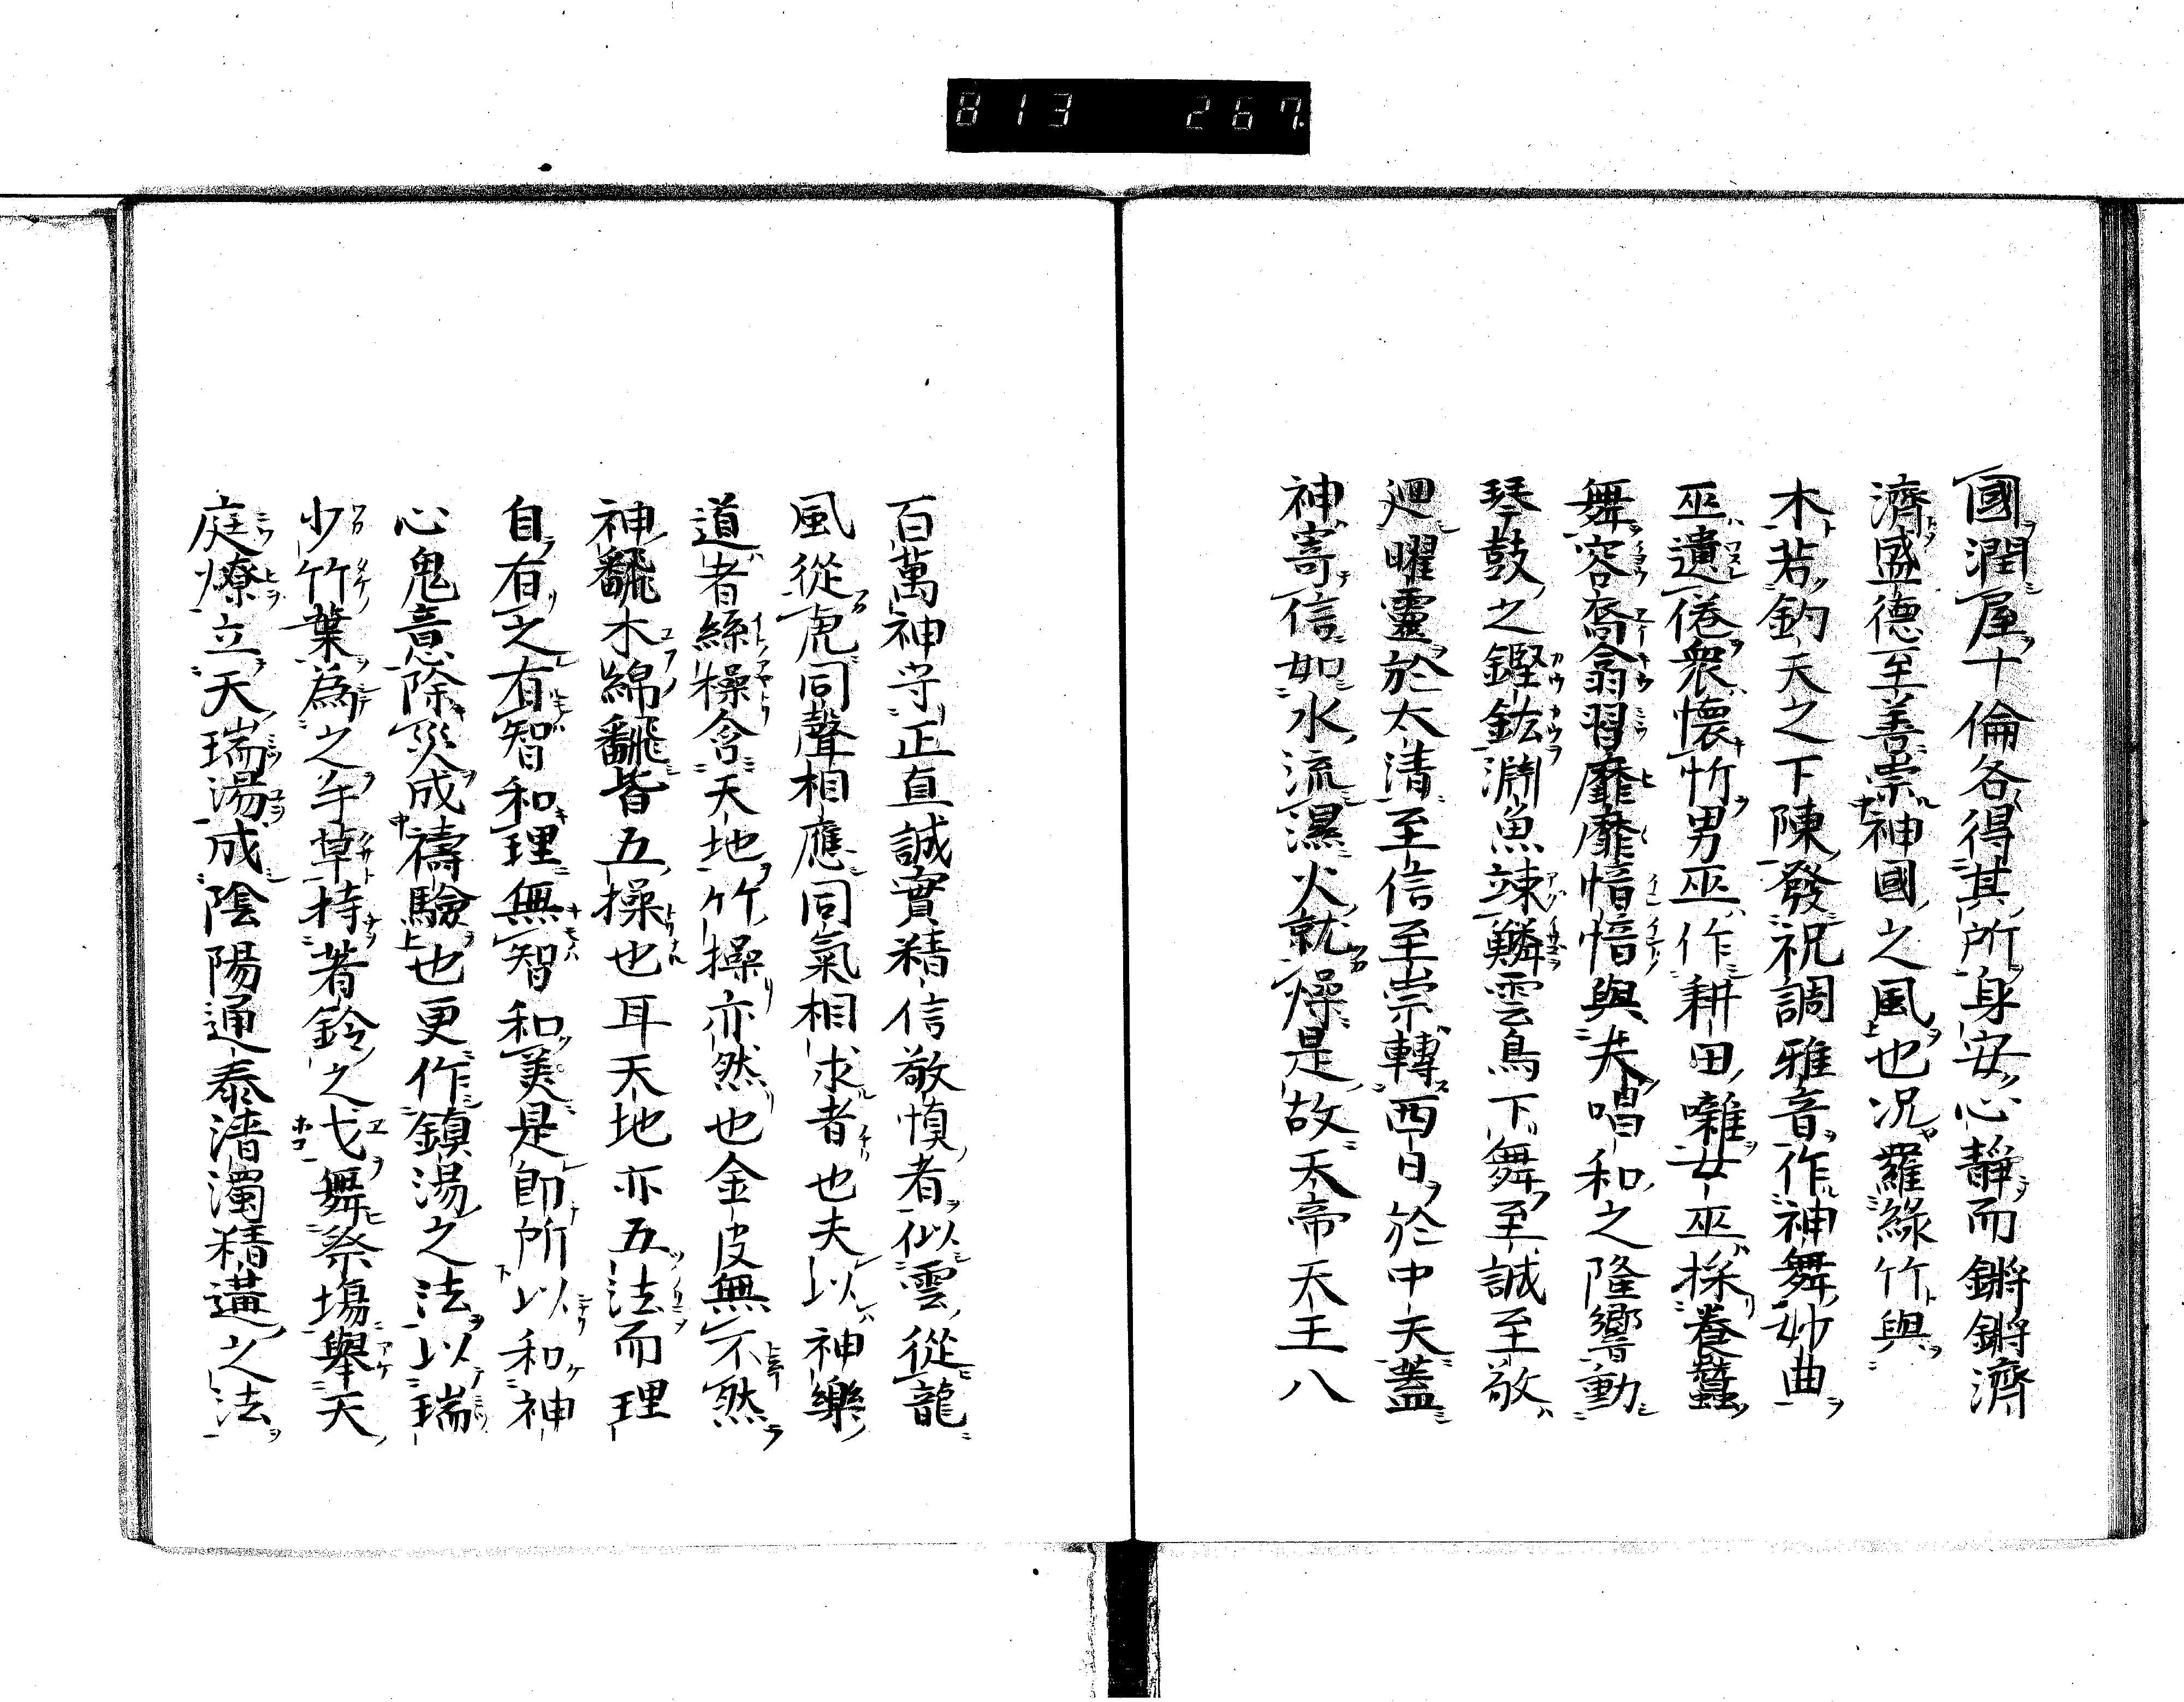 813 267
國潤屋十倫各得其所身安心靜而鏘鏘濟
濟盛德至善崇神國之風也況羅綠竹與
木若鈞天之下陳發祝調雅音作神舞妙曲
巫遺倦衆懷忻男巫作耕田囃女巫採養蠶
舞容裔翕習靡靡愔愔與夫唱和之隆響動
琴鼓之鏗鈜淵魚竦鱗雲鳥下舞至誠至敬
廻曜靈於太清至信至崇轉西日於中天蓋
神寄信如水流濕火就燥是故天帝天王八
百萬神守正直誠實精信敬慎者似雲從龍
風從虎同聲相應同氣相求者也夫以神樂
道者絲操含天地竹操亦然也金皮無不然
神飜木綿飜皆五操也耳天地亦五法而理
自有之有智和理無智和美是即所以和神
心鬼意除災成禱驗也更作鎮湯之法以瑞
少竹葉為之手草持著鈴之弋舞祭場舉天
庭燎立天瑞湯成陰陽通泰清濁精遘之法